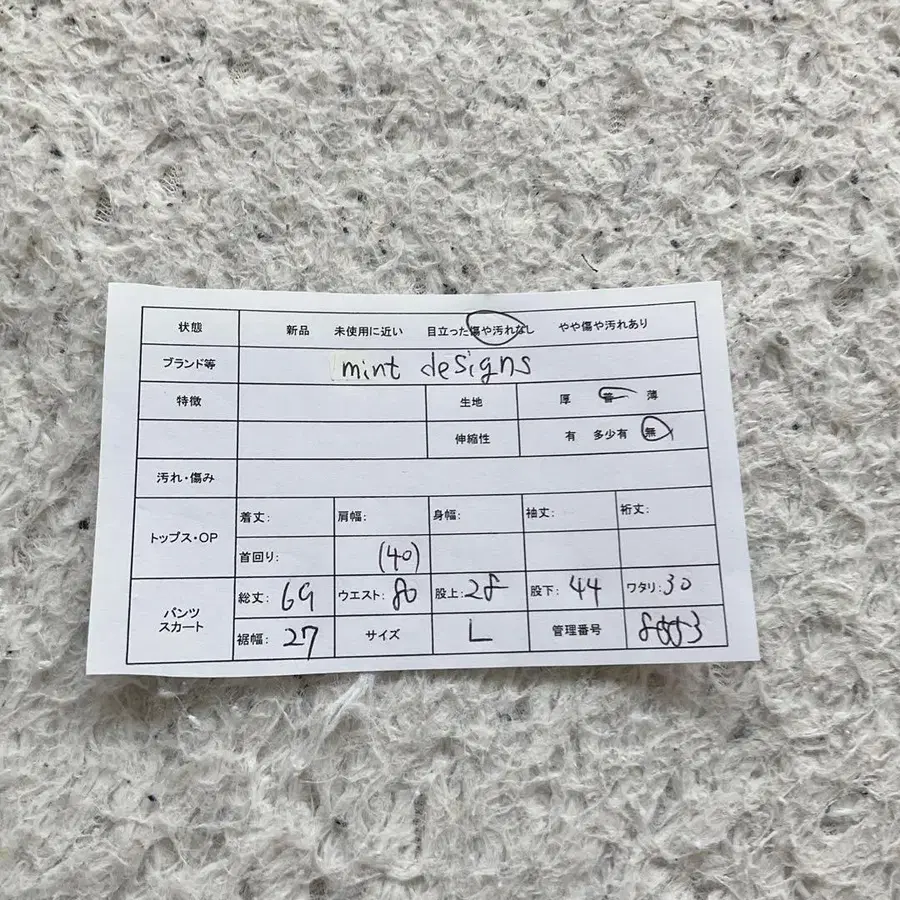 状態 新品 未使用に近い 目立った傷や汚れなし やや傷や汚れあり
ブランド等 mint designs
特徴 生地 厚 普 薄
伸縮性 有 多少有 無
汚れ・傷み
トップス・OP 着丈: 肩幅: 身幅: 袖丈: 裄丈:
首回り: (40)
パンツ スカート 総丈: 69 ウエスト: 80 股上: 28 股下: 44 ワタリ: 30
裾幅: 27 サイズ L 管理番号